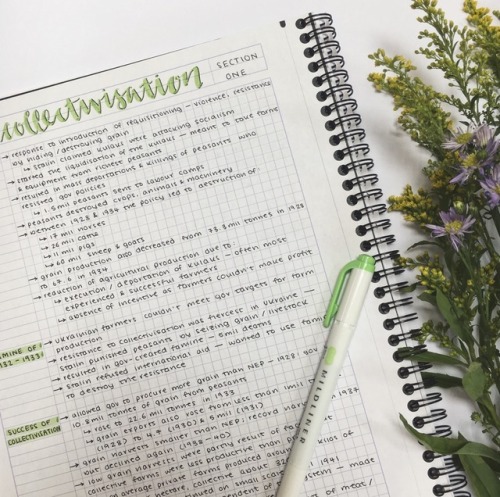 collectivisation
SECTION
ONE
→ response to introduction of requisitioning – violence, resistance
by hiding / destroying grain
↳ stalin claimed kulaks were attacking socialism
→ started the liquidation of the kulaks – meant to take farms
& equipment from richest peasants
→ resulted in mass deportations & killings of peasants who
resisted gov policies
↳ 1.5 mil peasants sent to labour camps
→ peasants destroyed crops, animals & machinery
→ between 1928 & 1934 the policy led to destruction of:
↳ 17 mil horses
↳ 26 mil cattle
↳ 11 mil pigs
↳ 60 mil sheep & goats
→ grain production also decreased from 73.3 mil tonnes in 1928
to 67.6 in 1934
→ reduction of agricultural production due to:
↳ execution / deportation of kulaks – often most
experienced & successful farmers
↳ absence of incentive as farmers couldn't make profit
FAMINE OF
1932 - 1933
→ ukrainian farmers couldn't meet gov targets for farm
production
→ resistance to collectivisation was fiercest in ukraine –
stalin punished peasants by seizing grain / livestock
→ resulted in gov-created famine – 5 mil deaths
→ stalin refused international aid – wanted to use famine
to destroy the resistance
SUCCESS OF
COLLECTIVISATION
→ allowed gov to procure more grain than NEP – 1928: gov
10.8 mil tonnes of grain from peasants
↳ rose to 22.6 mil tonnes in 1933
→ grain exports also rose from less than 1 mil
(1928) to 4.8 (1930) & 5 mil (1931)
→ grain harvests smaller than NEP: record harvest in 1937
but declined again
→ low grain harvests were partly result of fact
collective farms were less productive than
average private farms produced around kilos of
hectare, collective about
1941
made
of meat/
MIDLINER